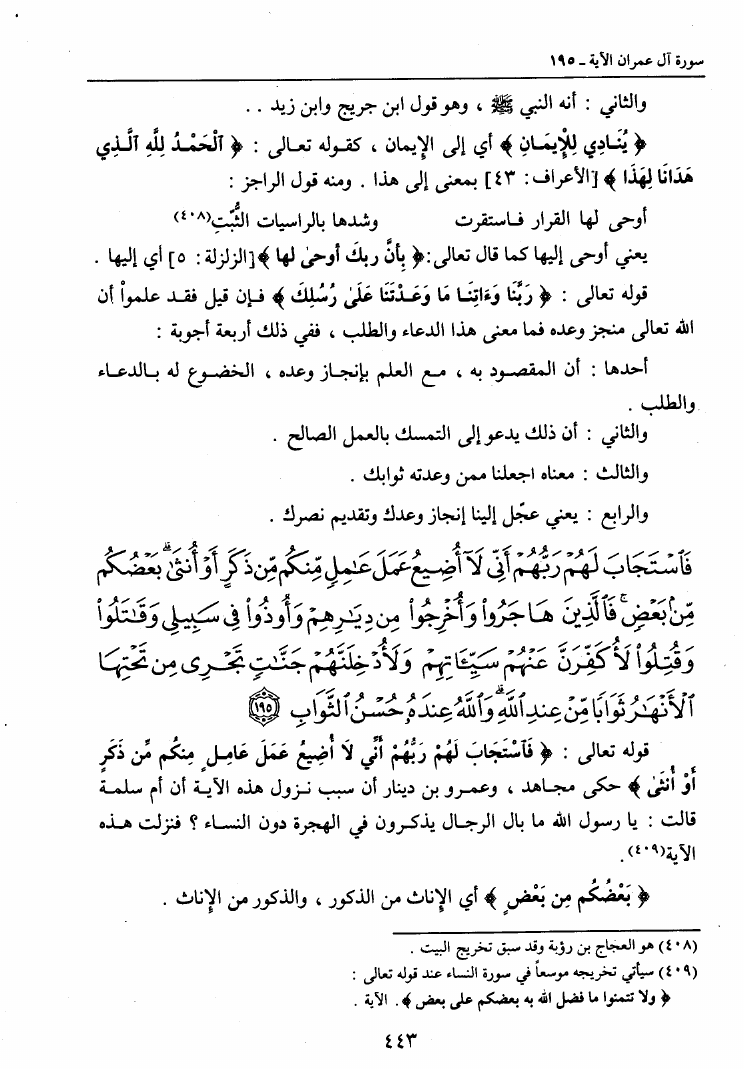 سورة آل عمران الآية ـ ١٩٥
والثاني : أنه النبي ﷺ ، وهو قول ابن جريج وابن زيد . .
﴿ يُنَادِي لِلْإِيمَانِ ﴾ أي إلى الإيمان ، كقوله تعالى : ﴿ ٱلْحَمْدُ لِلَّهِ ٱلَّذِي
هَدَانَا لِهَذَا ﴾ [الأعراف: ٤٣] بمعنى إلى هذا . ومنه قول الراجز :
أوحى لها القرار فاستقرت وشدها بالراسيات الثُّبّتِ(٤٠٨)
يعني أوحى إليها كما قال تعالى:﴿ بِأنَّ ربكَ أوحىٰ لها ﴾[الزلزلة: ٥] أي إليها .
قوله تعالى : ﴿ رَبَّنَا وَءَاتِنَا مَا وَعَدْتَنَا عَلَىٰ رُسُلِكَ ﴾ فإن قيل فقد علمواْ أن
الله تعالى منجز وعده فما معنى هذا الدعاء والطلب ، ففي ذلك أربعة أجوبة :
أحدها : أن المقصود به ، مع العلم بإنجاز وعده ، الخضوع له بالدعاء
والطلب .
والثاني : أن ذلك يدعو إلى التمسك بالعمل الصالح .
والثالث : معناه اجعلنا ممن وعدته ثوابك .
والرابع : يعني عجّل إلينا إنجاز وعدك وتقديم نصرك .
فَٱسْتَجَابَ لَهُمْ رَبُّهُمْ أَنِّي لَآ أُضِيعُ عَمَلَ عَٰمِلٍ مِّنكُم مِّن ذَكَرٍ أَوْ أُنثَىٰۖ بَعْضُكُم
مِّنۢ بَعْضٍۖ فَٱلَّذِينَ هَاجَرُوا۟ وَأُخْرِجُوا۟ مِن دِيَٰرِهِمْ وَأُوذُوا۟ فِى سَبِيلِى وَقَٰتَلُوا۟
وَقُتِلُوا۟ لَأُكَفِّرَنَّ عَنْهُمْ سَيِّـَٔاتِهِمْ وَلَأُدْخِلَنَّهُمْ جَنَّٰتٍ تَجْرِى مِن تَحْتِهَا
ٱلْأَنْهَٰرُ ثَوَابًا مِّنْ عِندِ ٱللَّهِۗ وَٱللَّهُ عِندَهُۥ حُسْنُ ٱلثَّوَابِ ١٩٥
قوله تعالى : ﴿ فَٱسْتَجَابَ لَهُمْ رَبُّهُمْ أَنِّي لَا أُضِيعُ عَمَلَ عَامِلٍ مِنكُم مِّن ذَكَرٍ
أَوْ أُنثَىٰ ﴾ حكى مجاهد ، وعمرو بن دينار أن سبب نزول هذه الآية أن أم سلمة
قالت : يا رسول الله ما بال الرجال يذكرون في الهجرة دون النساء ؟ فنزلت هذه
الآية(٤٠٩).
﴿ بَعْضُكُم مِن بَعْضٍ ﴾ أي الإناث من الذكور ، والذكور من الإناث .
(٤٠٨) هو العجاج بن رؤبة وقد سبق تخريج البيت .
(٤٠٩) سيأتي تخريجه موسعاً في سورة النساء عند قوله تعالى :
﴿ ولا تتمنوا ما فضل الله به بعضكم على بعض ﴾. الآية .
٤٤٣